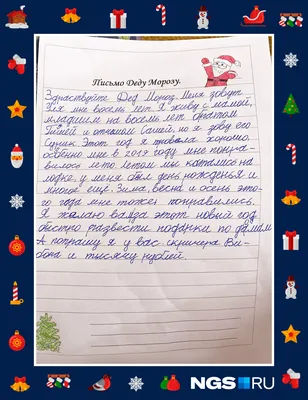 Письмо Деду Морозу.
Здравствуйте Дед Мороз. Меня зовут
мне восемь лет. Я живу с мамой,
младшим на восемь лет братом
и отчимом Сашей, но я зову его
Этот год я провела хорошо.
особенно мне в 2019 году мне понра-
вилось лето. Летом мы катались на
лодке, у меня был день рожденья и
многое ещё. Зима, весна и осень это-
го года мне тоже понравились.
Я желаю вам в этот новый год
быстро развезти подарки по домам.
А попрошу я у вас
и тысячу рублей.
NGS RU